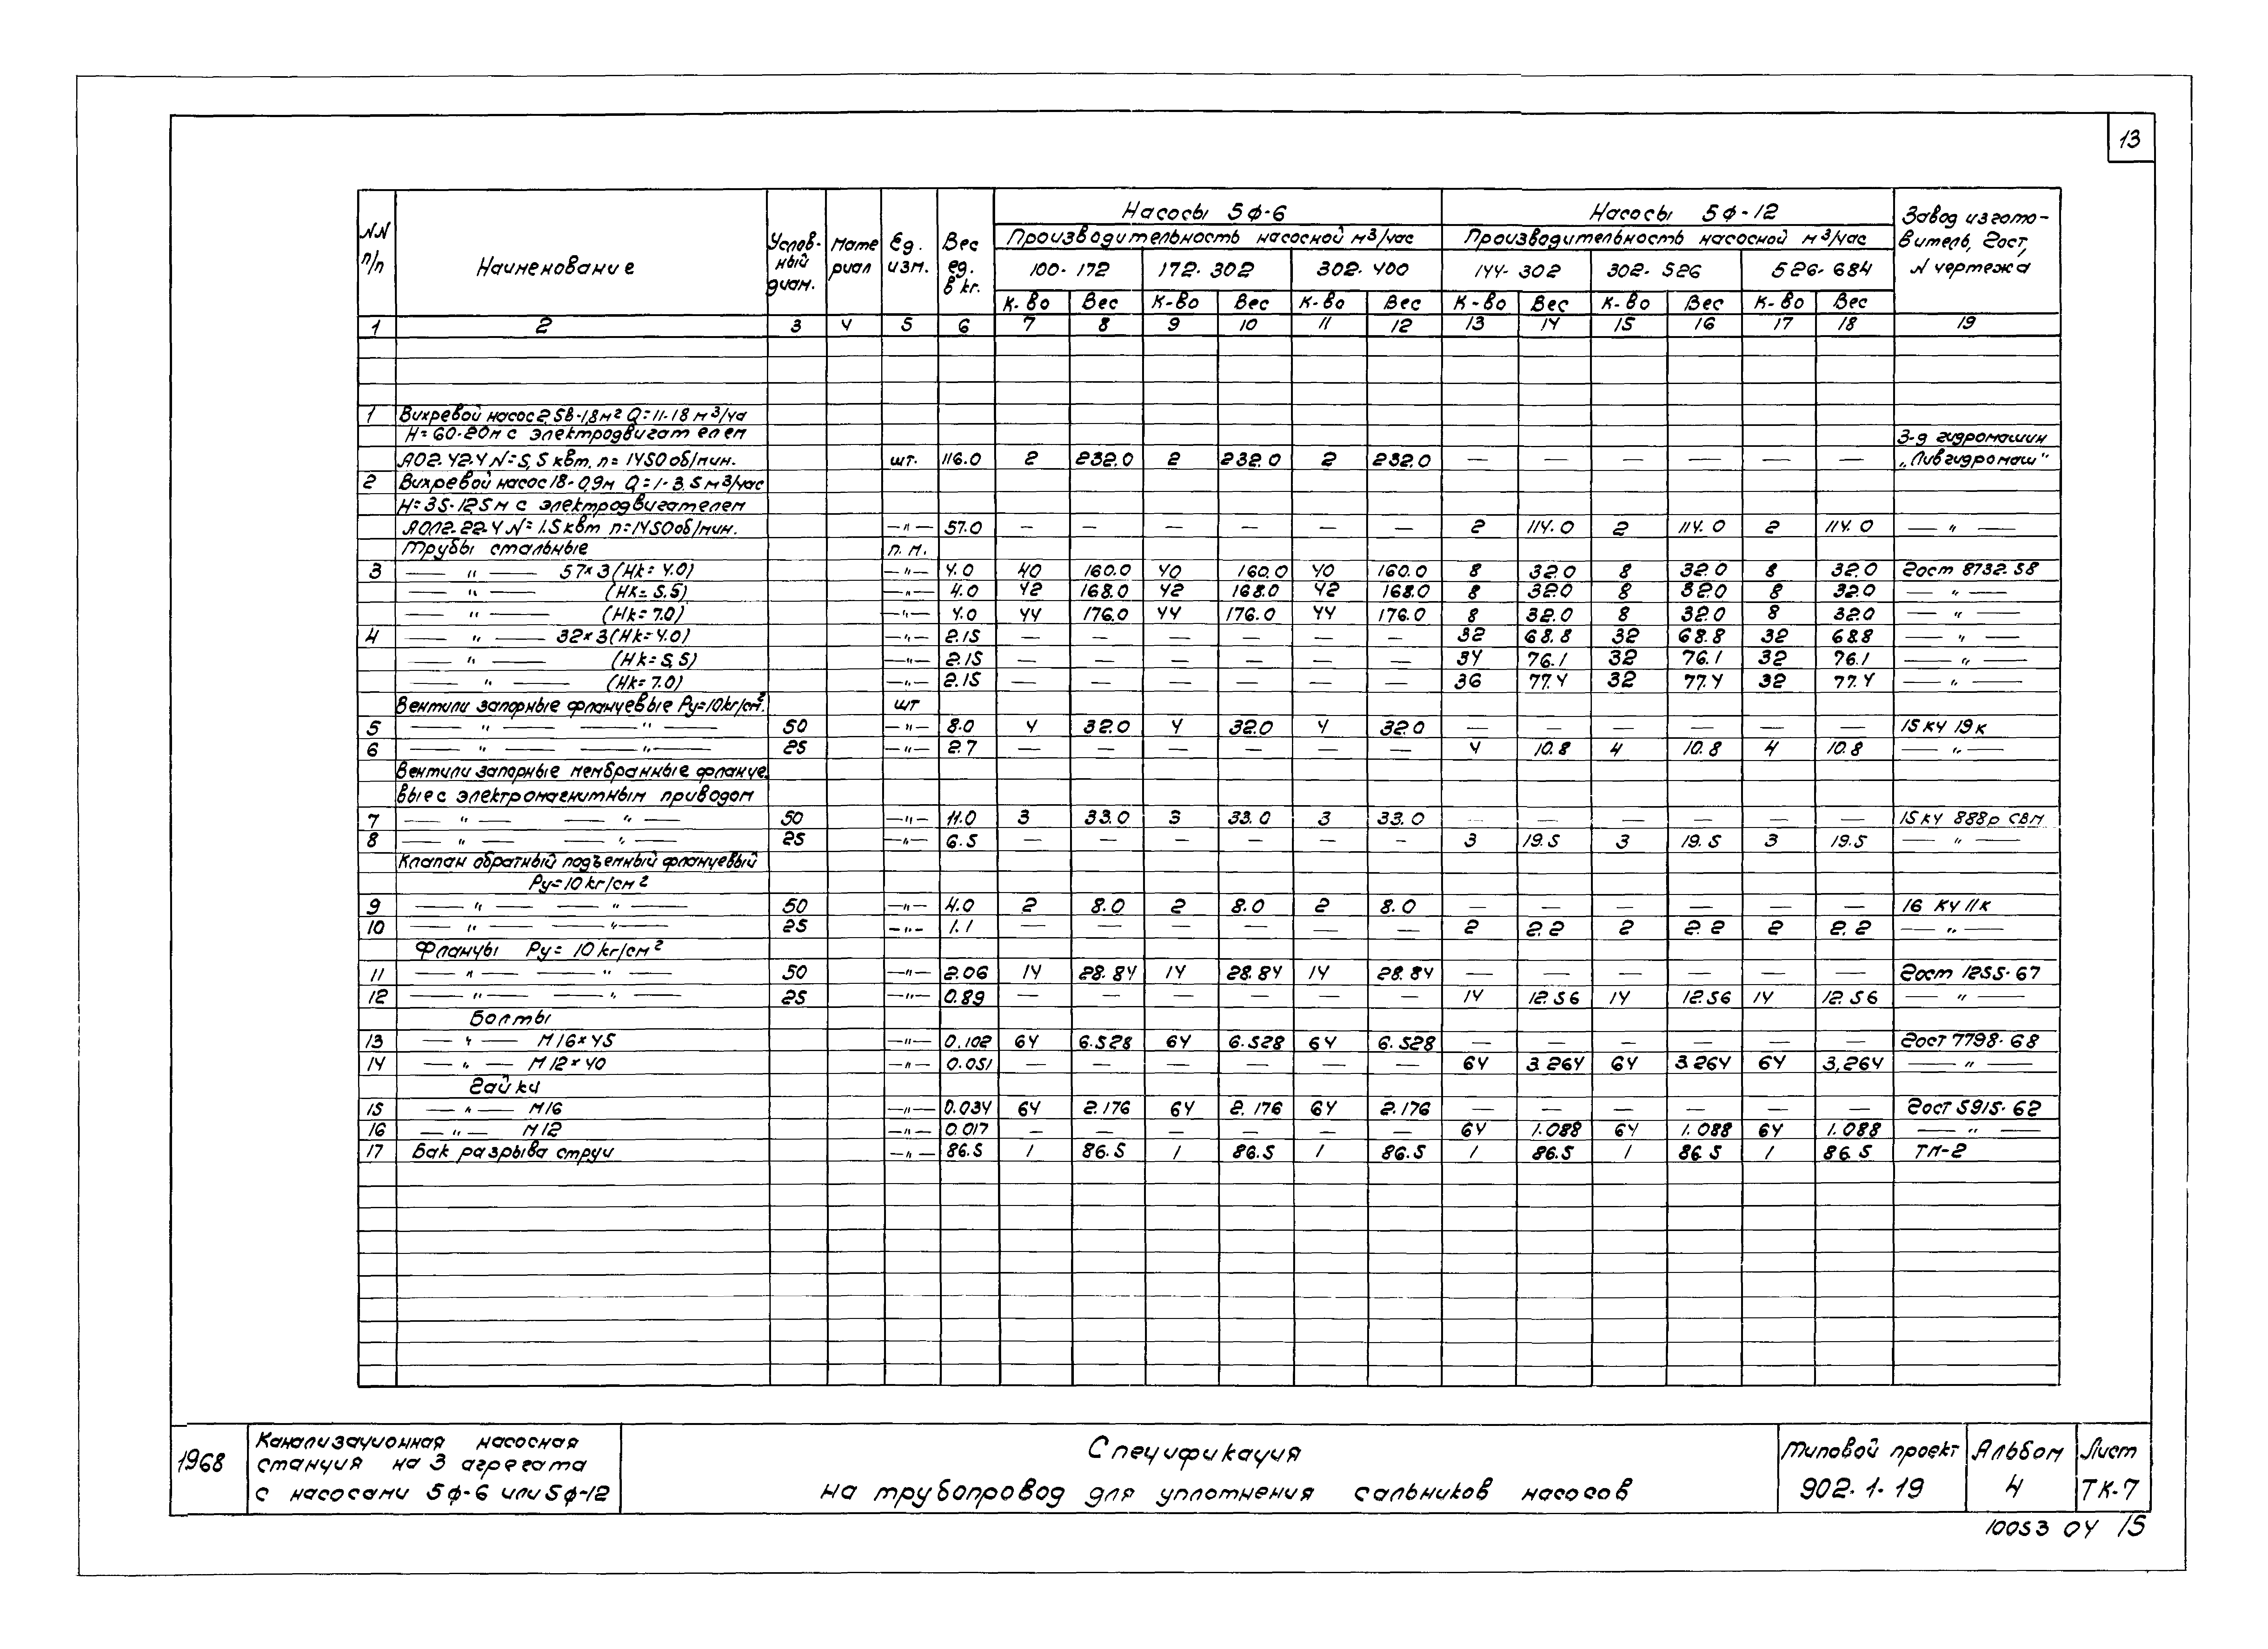 13
NN п/п | Наименование | Услов-ный диам. | Мате риал | Ед. изм. | Вес ед. в kг. | Насосы 5Ф-6 | Насосы 5Ф-12 | Завод изгото-витель, Гост, N чертежа
Производительность насосной м³/час | Производительность насосной м³/час
100-172 | 172-302 | 302-400 | 144-302 | 302-526 | 526-684
К-во | Вес | К-во | Вес | К-во | Вес | К-во | Вес | К-во | Вес | К-во | Вес
1 | 2 | 3 | 4 | 5 | 6 | 7 | 8 | 9 | 10 | 11 | 12 | 13 | 14 | 15 | 16 | 17 | 18 | 19
1 | Вихревой насос 2,5В-1,8м² Q=11-18 м³/ча
Н=60-20м с электродвигателем | З-д гидромашин
АО2-42-4 N=5,5 квт. n=1450 об/мин. | шт. | 116.0 | 2 | 232.0 | 2 | 232.0 | 2 | 232.0 | — | — | — | — | — | — | „Ливгидромаш"
2 | Вихревой насос 18-0,9м Q=1-3.5 м³/час
Н=35-125м с электродвигателем
АОЛ2-22-4 N=1.5 квт n=1450 об/мин. | —"— | 57.0 | — | — | — | — | — | — | 2 | 114.0 | 2 | 114.0 | 2 | 114.0 | —"—
Трубы стальные | п.м.
3 | —"— 57×3 (Нк=4.0) | —"— | 4.0 | 40 | 160.0 | 40 | 160.0 | 40 | 160.0 | 8 | 32.0 | 8 | 32.0 | 8 | 32.0 | Гост 8732-58
—"— (Нк=5.5) | —"— | 4.0 | 42 | 168.0 | 42 | 168.0 | 42 | 168.0 | 8 | 32.0 | 8 | 32.0 | 8 | 32.0 | —"—
—"— (Нк=7.0) | —"— | 4.0 | 44 | 176.0 | 44 | 176.0 | 44 | 176.0 | 8 | 32.0 | 8 | 32.0 | 8 | 32.0 | —"—
4 | —"— 32×3 (Нк=4.0) | —"— | 2.15 | — | — | — | — | — | — | 32 | 68.8 | 32 | 68.8 | 32 | 68.8 | —"—
—"— (Нк=5,5) | —"— | 2.15 | — | — | — | — | — | — | 34 | 76.1 | 32 | 76.1 | 32 | 76.1 | —"—
—"— (Нк=7.0) | —"— | 2.15 | — | — | — | — | — | — | 36 | 77.4 | 32 | 77.4 | 32 | 77.4 | —"—
Вентили запорные фланцевые Ру=10kг/см². | шт
5 | —"— —"— | 50 | —"— | 8.0 | 4 | 32.0 | 4 | 32.0 | 4 | 32.0 | — | — | — | — | — | — | 15 кч 19к
6 | —"— —"— | 25 | —"— | 2.7 | — | — | — | — | — | — | 4 | 10.8 | 4 | 10.8 | 4 | 10.8 | —"—
Вентили запорные мембранные фланце
вые с электромагнитным приводом
7 | —"— —"— | 50 | —"— | 11.0 | 3 | 33.0 | 3 | 33.0 | 3 | 33.0 | — | — | — | — | — | — | 15кч 888р СВМ
8 | —"— —"— | 25 | —"— | 6.5 | — | — | — | — | — | — | 3 | 19.5 | 3 | 19.5 | 3 | 19.5 | —"—
Клапан обратный подъемный фланцевый
Ру=10 kг/см²
9 | —"— —"— | 50 | —"— | 4.0 | 2 | 8.0 | 2 | 8.0 | 2 | 8.0 | — | — | — | — | — | — | 16 кч 11к
10 | —"— —"— | 25 | —"— | 1.1 | — | — | — | — | — | — | 2 | 2.2 | 2 | 2.2 | 2 | 2.2 | —"—
Фланцы Ру=10 kг/см²
11 | —"— —"— | 50 | —"— | 2.06 | 14 | 28.84 | 14 | 28.84 | 14 | 28.84 | — | — | — | — | — | — | Гост 1255-67
12 | —"— —"— | 25 | —"— | 0.89 | — | — | — | — | — | — | 14 | 12.56 | 14 | 12.56 | 14 | 12.56 | —"—
Болты
13 | —"— М16×45 | —"— | 0.102 | 64 | 6.528 | 64 | 6.528 | 64 | 6.528 | — | — | — | — | — | — | Гост 7798-68
14 | —"— М12×40 | —"— | 0.051 | — | — | — | — | — | — | 64 | 3.264 | 64 | 3.264 | 64 | 3,264 | —"—
Гайки
15 | —"— М16 | —"— | 0.034 | 64 | 2.176 | 64 | 2.176 | 64 | 2.176 | — | — | — | — | — | — | Гост 5915-62
16 | —"— М12 | —"— | 0.017 | — | — | — | — | — | — | 64 | 1.088 | 64 | 1.088 | 64 | 1.088 | —"—
17 | Бак разрыва струи | —"— | 86.5 | 1 | 86.5 | 1 | 86.5 | 1 | 86.5 | 1 | 86.5 | 1 | 86.5 | 1 | 86.5 | ТМ-2
1968
Канализационная насосная
станция на 3 агрегата
с насосами 5Ф-6 или 5Ф-12
Спецификация
на трубопровод для уплотнения сальников насосов
Типовой проект
902-1-19
Альбом
4
Лист
ТК-7
10053 04 15